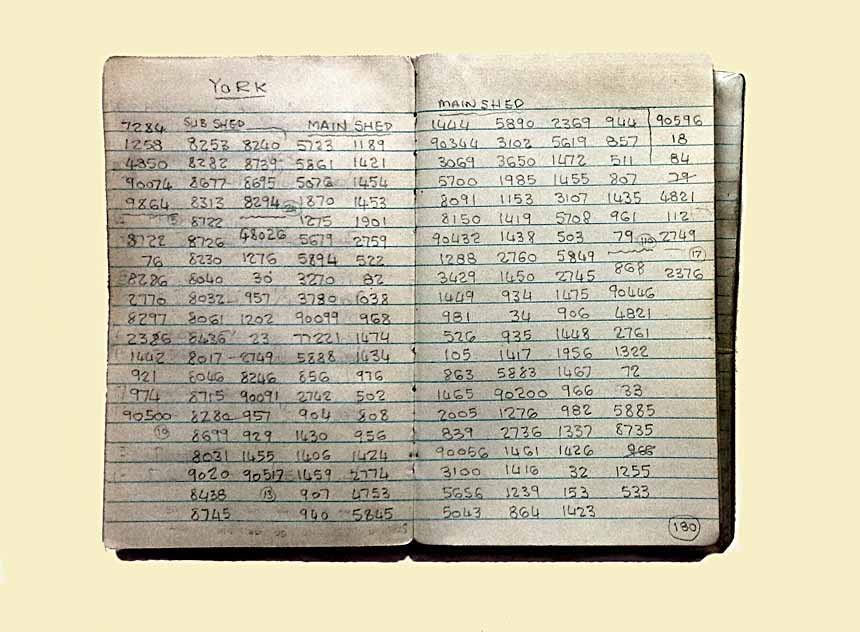 YORK
7284 SUB SHED MAIN SHED
1258 8253 8240 5723 1189
4350 8282 8739 5861 1421
90074 8677 8695 5076 1454
9864 8313 8294 1870 1453
8722 1275 1901
8722 8726 48026 5679 2759
76 8230 1276 5894 522
8286 8040 30 3270 82
2770 8032 957 3780 1038
8297 8061 1202 90099 968
2386 8436 23 77221 1474
1442 8017 2749 5888 1434
921 8046 8246 856 976
974 8715 90091 2742 502
90500 8280 957 904 808
19 8699 929 1430 956
8031 1455 1406 1424
9020 90517 1459 2774
8438 13 907 4753
8745 940 5845
MAIN SHED
1444 5890 2369 944 90596
90344 3102 5619 857 18
3069 3650 1472 511 84
5700 1985 1455 807 79
8091 1153 3107 1435 4821
8150 1419 5708 961 112
90432 1438 503 79 110 2749
1288 2760 5849 17
3429 1450 2745 868 2376
1449 934 1475 90446
981 34 906 4821
526 935 1448 2761
105 1417 1956 1322
863 5883 1467 72
1465 90200 966 33
2005 1276 982 5885
839 2736 1337 8735
90056 1461 1426
3100 1416 32 1255
5656 1239 153 533
5043 864 1423
130